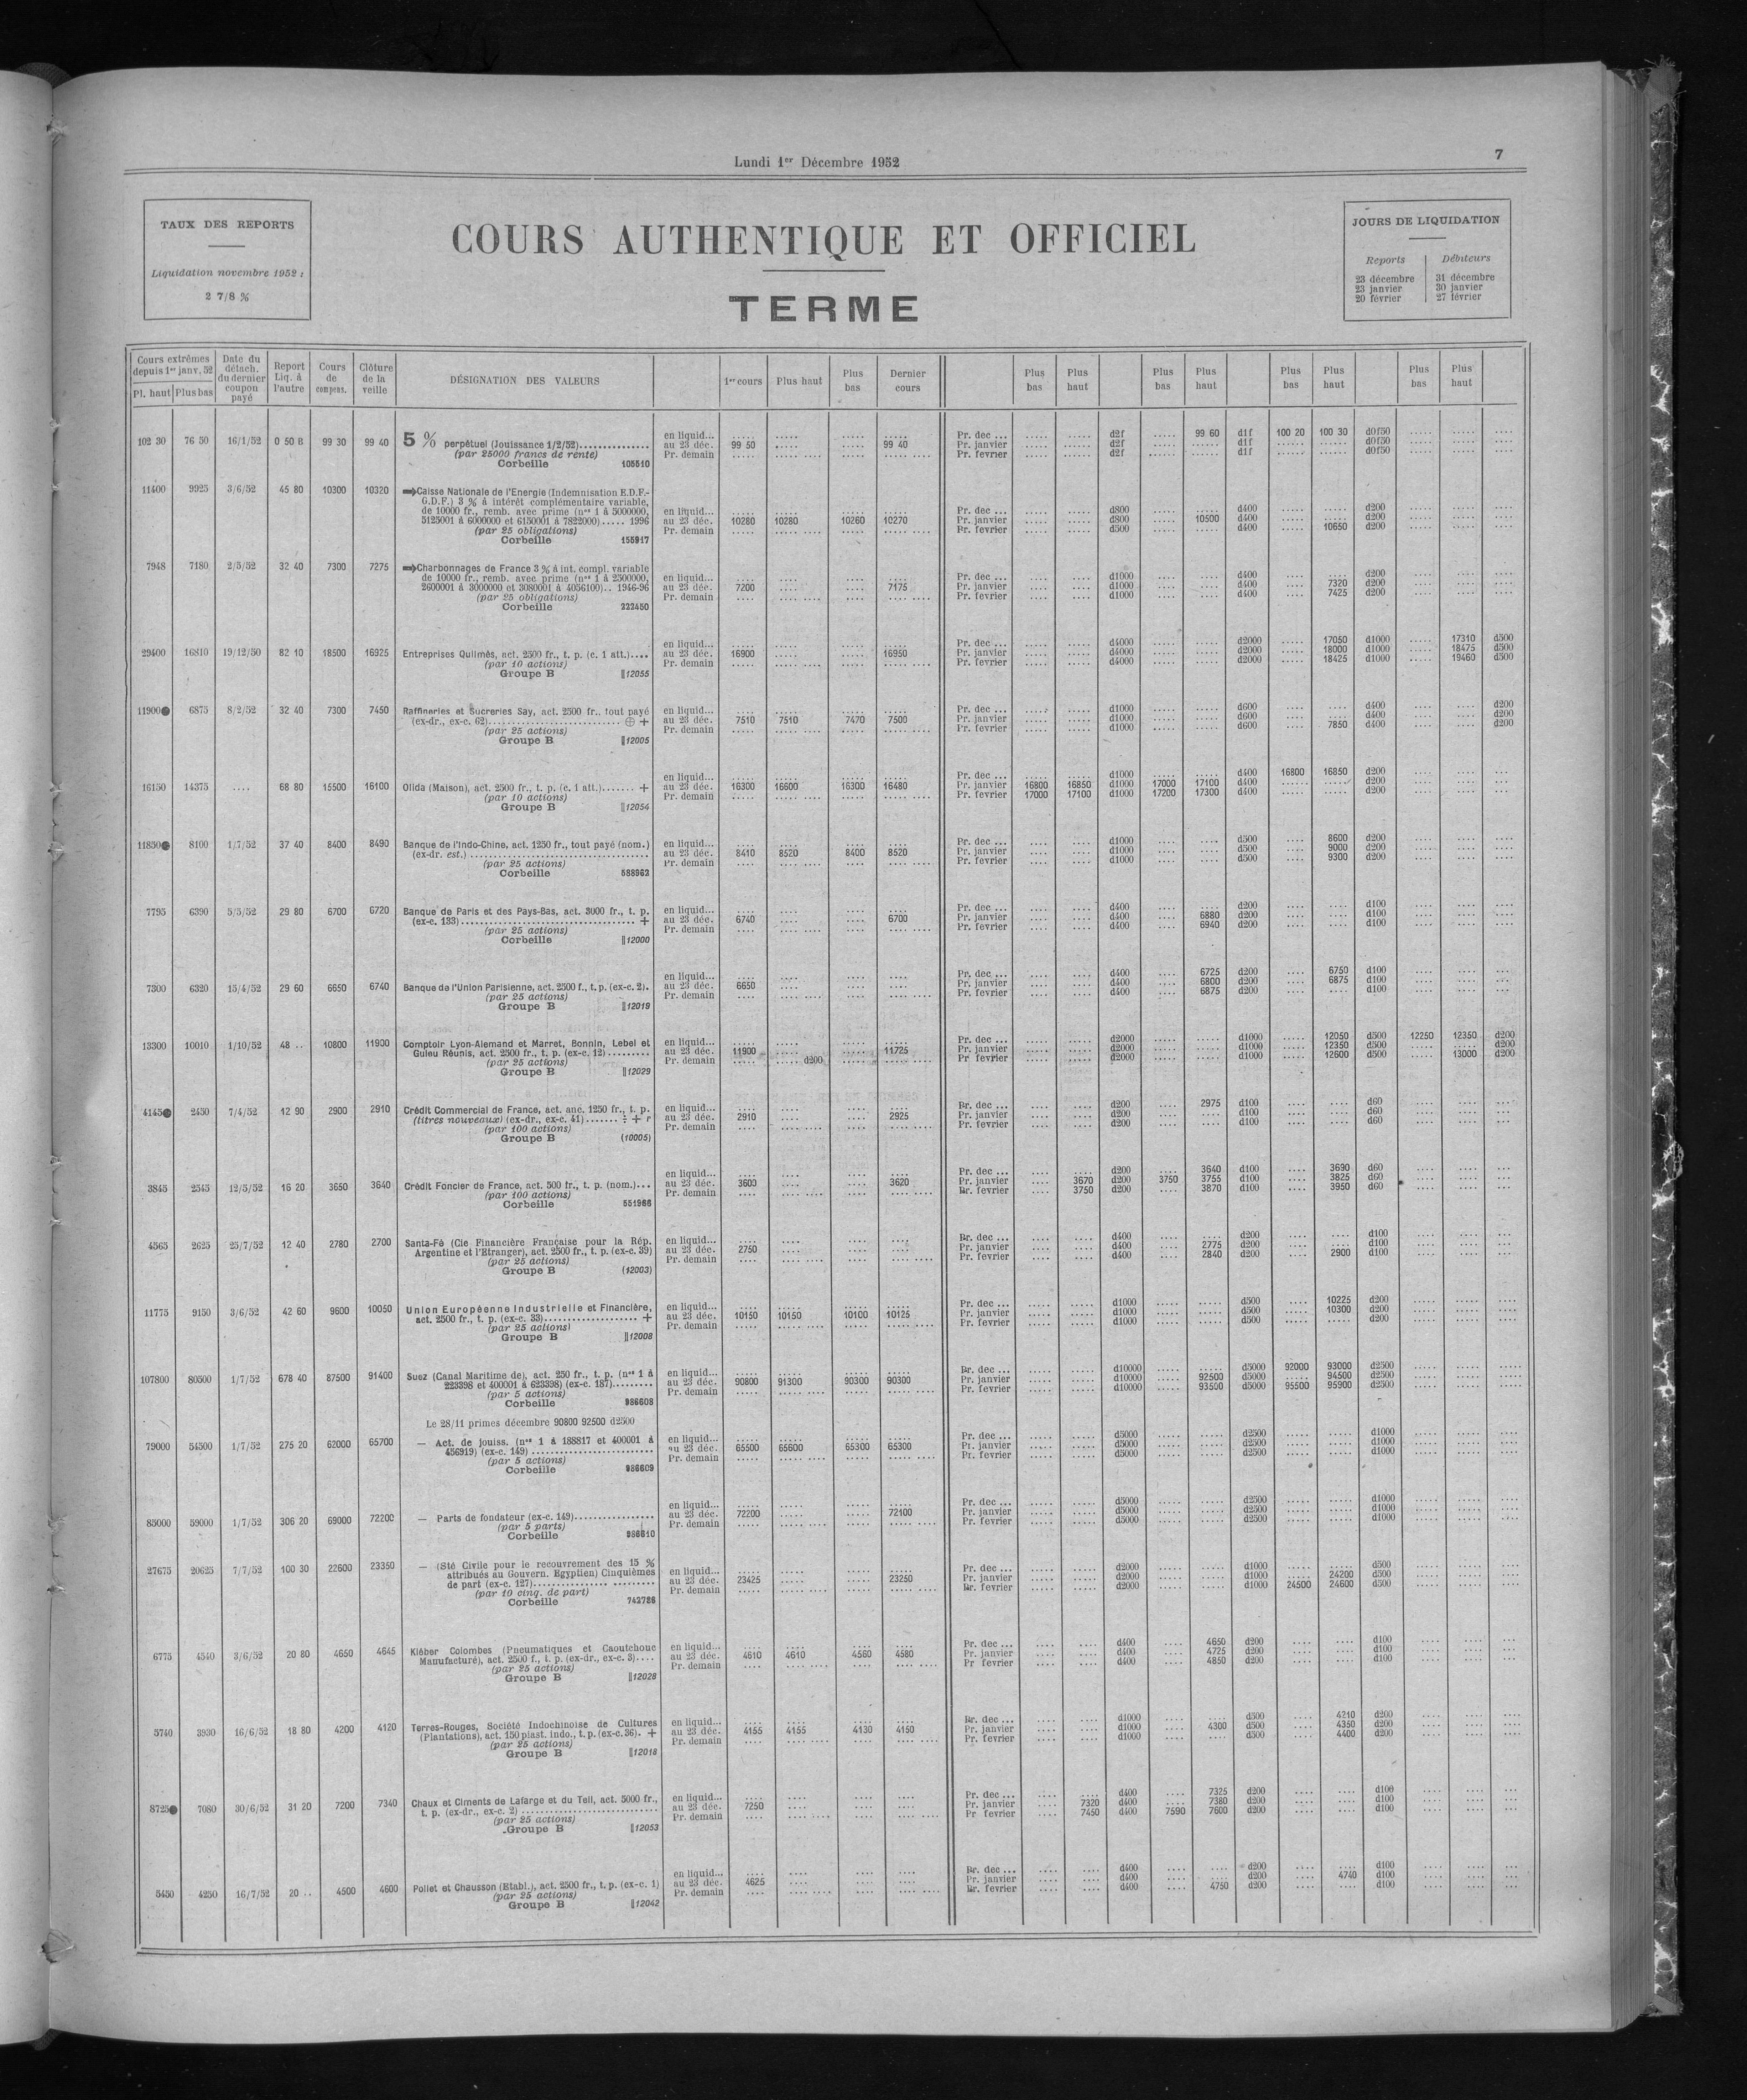 Lundi 1er Décembre 1952
7
TAUX DES REPORTS
Liquidation novembre 1952 :
2 7/8 %
COURS AUTHENTIQUE ET OFFICIEL
TERME
JOURS DE LIQUIDATION
Reports Débiteurs
23 décembre 31 décembre
23 janvier 30 janvier
20 février 27 février
Cours extrêmes depuis 1er janv. 52 Pl. haut Plus bas
Date du détach. du dernier coupon payé
Report Liq. à l'autre
Cours de compens.
Clôture de la veille
DÉSIGNATION DES VALEURS
1er cours Plus haut Plus bas Dernier cours
Plus bas Plus haut Plus bas Plus haut Plus bas Plus haut Plus bas Plus haut
102 30 76 50 16/1/52 0 50 B 99 30 99 40
5 % perpétuel (Jouissance 1/2/52)
(par 25000 francs de rente)
Corbeille 105510
en liquid...
au 23 déc. 99 50 99 40
Pr. demain
Pr. dec ... d2f 99 60 d1f 100 20 100 30 d0f50
Pr. janvier d2f d1f d0f50
Pr. fevrier d2f d1f d0f50
11400 9925 3/6/52 45 80 10300 10320
Caisse Nationale de l'Energie (Indemnisation E.D.F.-
G.D.F.) 3 % à intérêt complémentaire variable,
de 10000 fr., remb. avec prime (nos 1 à 5000000,
5125001 à 6000000 et 6150001 à 7822000)..... 1996
(par 25 obligations)
Corbeille 155917
en liquid...
au 23 déc. 10280 10280 10260 10270
Pr. demain
Pr. dec ... d800 d400 d200
Pr. janvier d800 10500 d400 d200
Pr. fevrier d500 d400 10650 d200
7948 7180 2/5/52 32 40 7300 7275
Charbonnages de France 3 % à int. compl. variable
de 10000 fr., remb. avec prime (nos 1 à 2500000,
2600001 à 3000000 et 3080001 à 4056100).. 1946-96
(par 25 obligations)
Corbeille 222450
en liquid...
au 23 déc. 7200 7175
Pr. demain
Pr. dec ... d1000 d400 d200
Pr. janvier d1000 d400 7320 d200
Pr. fevrier d1000 d400 7425 d200
29400 16810 19/12/50 82 10 18500 16925
Entreprises Quilmès, act. 2500 fr., t. p. (c. 1 att.)....
(par 10 actions)
Groupe B ‖12055
en liquid...
au 23 déc. 16900 16950
Pr. demain
Pr. dec ... d4000 d2000 17050 d1000 17310 d500
Pr. janvier d4000 d2000 18000 d1000 18475 d500
Pr. fevrier d4000 d2000 18425 d1000 19460 d500
11900● 6875 8/2/52 32 40 7300 7450
Raffineries et Sucreries Say, act. 2500 fr., tout payé
(ex-dr., ex-c. 62) ⊕ +
(par 25 actions)
Groupe B ‖12005
en liquid...
au 23 déc. 7510 7510 7470 7500
Pr. demain
Pr. dec ... d1000 d600 d400 d200
Pr. janvier d1000 d600 d400 d200
Pr. fevrier d1000 d600 7850 d400 d200
16150 14375 .... 68 80 15500 16100
Olida (Maison), act. 2500 fr., t. p. (c. 1 att.)....... +
(par 10 actions)
Groupe B ‖12054
en liquid...
au 23 déc. 16300 16600 16300 16480
Pr. demain
Pr. dec ... d1000 d400 16800 16850 d200
Pr. janvier 16800 16850 d1000 17000 17100 d400 d200
Pr. fevrier 17000 17100 d1000 17200 17300 d400 d200
11850● 8100 1/7/52 37 40 8400 8490
Banque de l'Indo-Chine, act. 1250 fr., tout payé (nom.)
(ex-dr. est.)
(par 25 actions)
Corbeille 588962
en liquid...
au 23 déc. 8410 8520 8400 8520
Pr. demain
Pr. dec ... d1000 d500 8600 d200
Pr. janvier d1000 d500 9000 d200
Pr. fevrier d1000 d500 9300 d200
7795 6390 5/5/52 29 80 6700 6720
Banque de Paris et des Pays-Bas, act. 3000 fr., t. p.
(ex-c. 133) +
(par 25 actions)
Corbeille ‖12000
en liquid...
au 23 déc. 6740 6700
Pr. demain
Pr. dec ... d400 d200 d100
Pr. janvier d400 6880 d200 d100
Pr. fevrier d400 6940 d200 d100
7300 6320 15/4/52 29 60 6650 6740
Banque de l'Union Parisienne, act. 2500 f., t. p. (ex-c. 2).
(par 25 actions)
Groupe B ‖12019
en liquid...
au 23 déc. 6650
Pr. demain
Pr. dec ... d400 6725 d200 6750 d100
Pr. janvier d400 6800 d200 6875 d100
Pr. fevrier d400 6875 d200 d100
13300 10010 1/10/52 48 .. 10800 11900
Comptoir Lyon-Alemand et Marret, Bonnin, Lebel et
Guieu Réunis, act. 2500 fr., t. p. (ex-c. 12)
(par 25 actions)
Groupe B ‖12029
en liquid...
au 23 déc. 11900 11725
Pr. demain d200
Pr. dec ... d2000 d1000 12050 d500 12250 12350 d200
Pr. janvier d2000 d1000 12350 d500 d200
Pr fevrier d2000 d1000 12600 d500 13000 d200
4145● 2450 7/4/52 12 90 2900 2910
Crédit Commercial de France, act. anc. 1250 fr., t. p.
(titres nouveaux) (ex-dr., ex-c. 41)....... ÷ + r
(par 100 actions)
Groupe B (10005)
en liquid...
au 23 déc. 2910 2925
Pr. demain
Pr. dec ... d200 2975 d100 d60
Pr. janvier d200 d100 d60
Pr. fevrier d200 d100 d60
3845 2545 12/5/52 16 20 3650 3640
Crédit Foncier de France, act. 500 fr., t. p. (nom.)...
(par 100 actions)
Corbeille 551966
en liquid...
au 23 déc. 3600 3620
Pr. demain
Pr. dec ... d200 3640 d100 3690 d60
Pr. janvier 3670 d200 3750 3755 d100 3825 d60
Pr. fevrier 3750 d200 3870 d100 3950 d60
4565 2625 25/7/52 12 40 2780 2700
Santa-Fé (Cie Financière Française pour la Rép.
Argentine et l'Etranger), act. 2500 fr., t. p. (ex-c. 39)
(par 25 actions)
Groupe B (12003)
en liquid...
au 23 déc. 2750
Pr. demain
Pr. dec ... d400 d200 d100
Pr. janvier d400 2775 d200 d100
Pr. fevrier d400 2840 d200 2900 d100
11775 9150 3/6/52 42 60 9600 10050
Union Européenne Industrielle et Financière,
act. 2500 fr., t. p. (ex-c. 33) +
(par 25 actions)
Groupe B ‖12008
en liquid...
au 23 déc. 10150 10150 10100 10125
Pr. demain
Pr. dec ... d1000 d500 10225 d200
Pr. janvier d1000 d500 10300 d200
Pr. fevrier d1000 d500 d200
107800 80500 1/7/52 678 40 87500 91400
Suez (Canal Maritime de), act. 250 fr., t. p. (nos 1 à
223398 et 400001 à 623398) (ex-c. 187)
(par 5 actions)
Corbeille 986608
en liquid...
au 23 déc. 90800 91300 90300 90300
Pr. demain
Pr. dec ... d10000 d5000 92000 93000 d2500
Pr. janvier d10000 92500 d5000 94500 d2500
Pr. fevrier d10000 93500 d5000 95500 95900 d2500
Le 28/11 primes décembre 90800 92500 d2500
79000 54500 1/7/52 275 20 62000 65700
— Act. de jouiss. (nos 1 à 188817 et 400001 à
456919) (ex-c. 149)
(par 5 actions)
Corbeille 986609
en liquid...
au 23 déc. 65500 65600 65300 65300
Pr. demain
Pr. dec ... d5000 d2500 d1000
Pr. janvier d5000 d2500 d1000
Pr. fevrier d5000 d2500 d1000
85000 59000 1/7/52 306 20 69000 72200
— Parts de fondateur (ex-c. 149)
(par 5 parts)
Corbeille 986610
en liquid...
au 23 déc. 72200 72100
Pr. demain
Pr. dec ... d5000 d2500 d1000
Pr. janvier d5000 d2500 d1000
Pr. fevrier d5000 d2500 d1000
27675 20625 7/7/52 100 30 22600 23350
— (Sté Civile pour le recouvrement des 15 %
attribués au Gouvern. Egyptien) Cinquièmes
de part (ex-c. 127)
(par 10 cinq. de part)
Corbeille 742786
en liquid...
au 23 déc. 23425 23250
Pr. demain
Pr. dec ... d2000 d1000 d500
Pr. janvier d2000 d1000 24200 d500
Pr. fevrier d2000 d1000 24500 24600 d500
6775 4540 3/6/52 20 80 4650 4645
Kléber Colombes (Pneumatiques et Caoutchouc
Manufacturé), act. 2500 f., t. p. (ex-dr., ex-c. 3)....
(par 25 actions)
Groupe B ‖12028
en liquid...
au 23 déc. 4610 4610 4560 4580
Pr. demain
Pr. dec ... d400 4650 d200 d100
Pr. janvier d400 4725 d200 d100
Pr fevrier d400 4850 d200 d100
5740 3930 16/6/52 18 80 4200 4120
Terres-Rouges, Société Indochinoise de Cultures
(Plantations), act. 150 piast. indo., t. p. (ex-c. 36). +
(par 25 actions)
Groupe B ‖12018
en liquid...
au 23 déc. 4155 4155 4130 4150
Pr. demain
Pr. dec ... d1000 d500 4210 d200
Pr. janvier d1000 4300 d500 4350 d200
Pr. fevrier d1000 d500 4400 d200
8725● 7080 30/6/52 31 20 7200 7340
Chaux et Ciments de Lafarge et du Teil, act. 5000 fr.,
t. p. (ex-dr., ex-c. 2)
(par 25 actions)
Groupe B ‖12053
en liquid...
au 23 déc. 7250
Pr. demain
Pr. dec ... d400 7325 d200 d100
Pr. janvier 7320 d400 7380 d200 d100
Pr fevrier 7450 d400 7590 7600 d200 d100
5450 4250 16/7/52 20 .. 4500 4600
Poliet et Chausson (Etabl.), act. 2500 fr., t. p. (ex-c. 1)
(par 25 actions)
Groupe B ‖12042
en liquid...
au 23 déc. 4625
Pr. demain
Pr. dec ... d400 d200 d100
Pr. janvier d400 d200 4740 d100
Pr. fevrier d400 4750 d200 d100